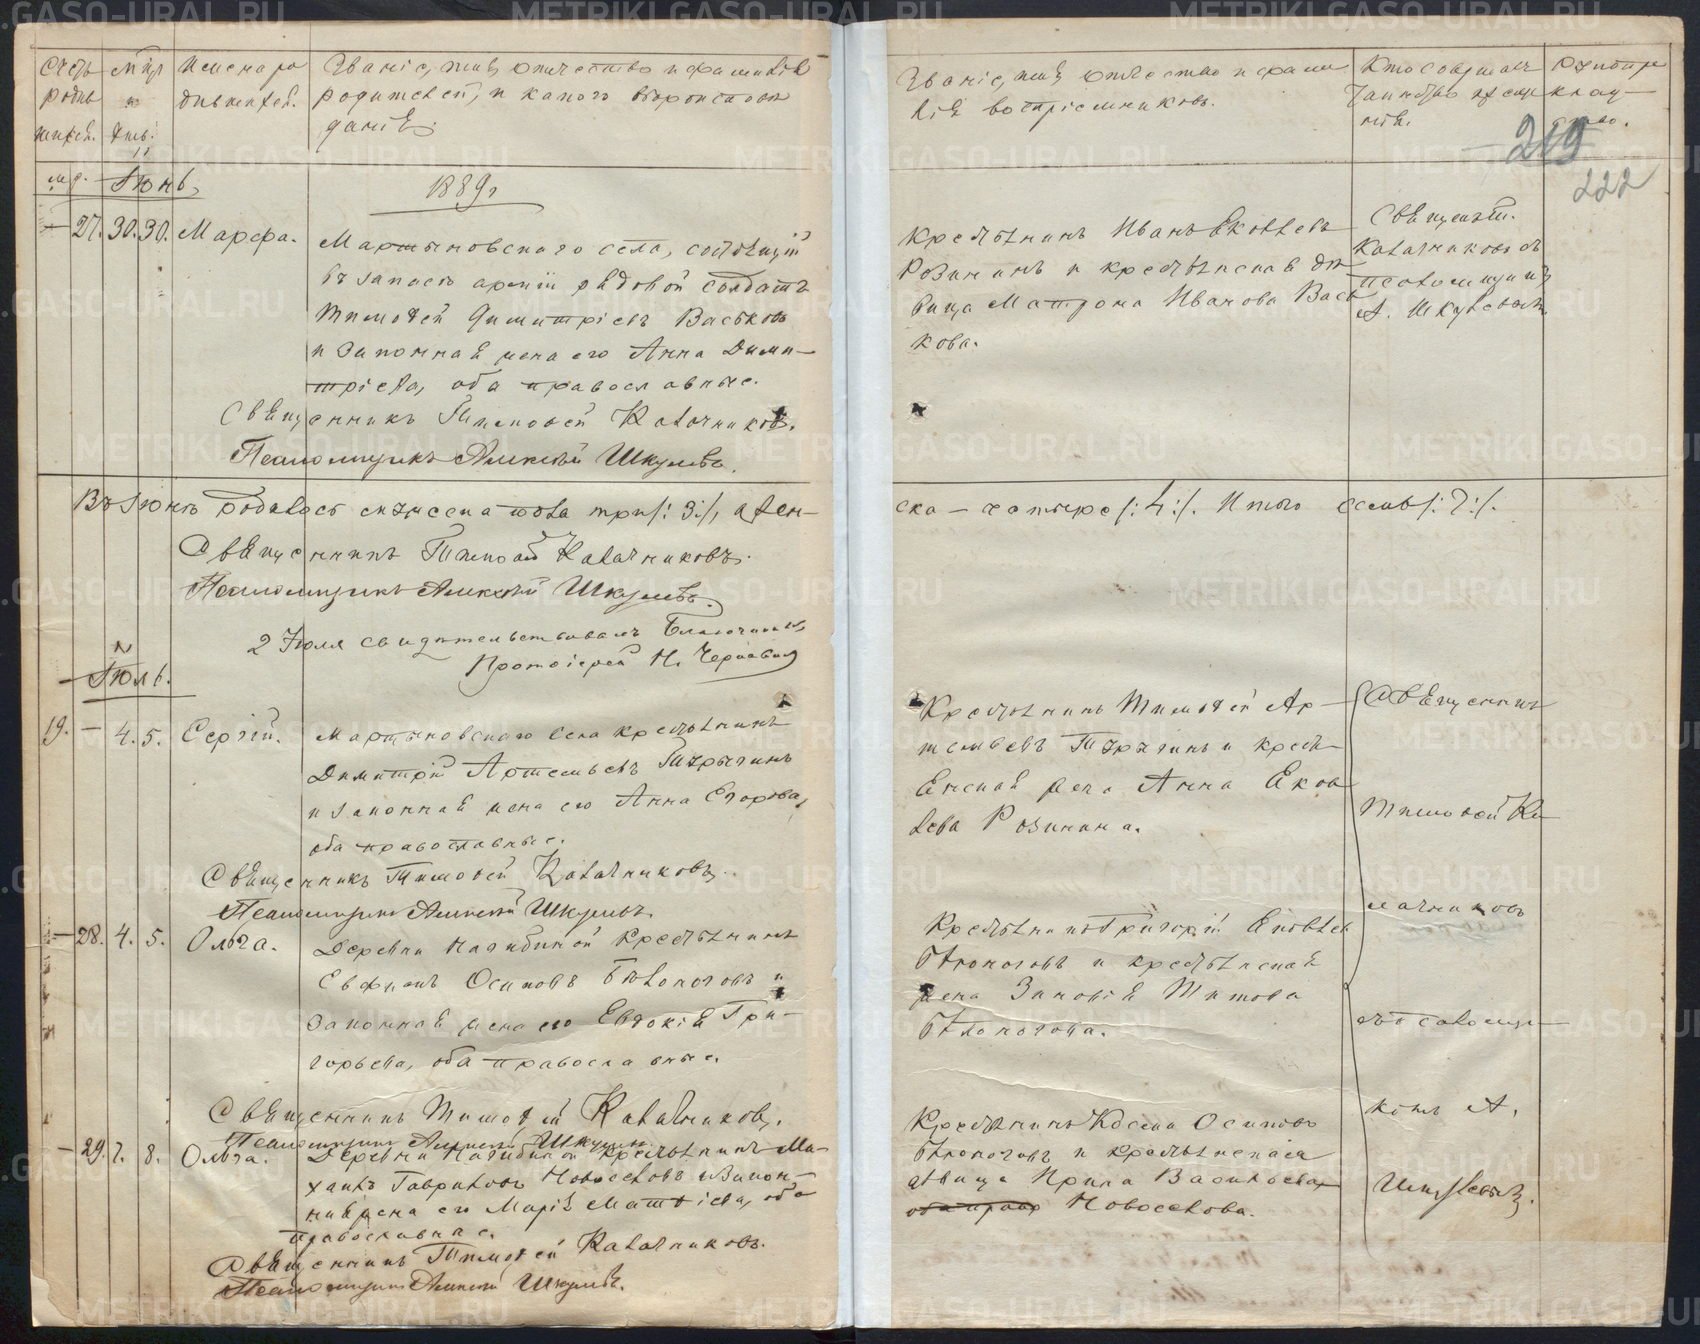 Счетъ родив шихся.
Мѣсц и день.
Имена ро дившихся.
Званіе, имя, отчество и фамилія
родителей, и какого вѣроисповѣ
данія.
Званіе, имя, отчество и фами
лія воспріемниковъ.
Кто совершалъ
таинство креще
нія.
219
222
м. ж. Іюнь,
1889 г.
27. 30. 30. Марѳа.
Мартыновскаго села, состоящій
въ запасѣ арміи рядовой солдатъ
Тимоѳей Димитріевъ Васьковъ
и законная жена его Анна Дими-
тріева, оба православные.
Священникъ Тимоѳей Калачниковъ.
Псаломщикъ Алексѣй Шкулевъ.
Крестьянинъ Иванъ Яковлевъ
Розининъ и крестьянская дѣ
вица Матрона Иванова Вась
кова.
Священ.
Калачниковъ съ
псаломщикомъ
А. Шкулевымъ
Въ Іюнѣ родилось мужеска пола три /: 3 :/, а жен-
ска — четыре /: 4 :/. Итого семь /: 7 :/.
Священникъ Тимоѳей Калачниковъ.
Псаломщикъ Алексѣй Шкулевъ.
2 Іюля свидѣтельствовалъ Благочинный,
Протоіерей Н. Чернавинъ
Іюль.
19. — 4. 5. Сергій.
Мартыновскаго села крестьянинъ
Димитрій Артемьевъ
и законная жена его Анна Егорова,
оба православные.
Священникъ Тимоѳей Калачниковъ.
Псаломщикъ Алексѣй Шкулевъ.
Крестьянинъ Тимоѳей Ар-
темьевъ и кресть-
янская жена Анна Яков
лева Розинина.
— 28. 4. 5. Ольга.
Деревни крестьянинъ
Евфимъ Осиповъ Бѣлоноговъ и
законная жена его Евдокія Гри-
горьева, оба православные.
Священникъ Тимоѳей Калачниковъ.
Псаломщикъ Алексѣй Шкулевъ.
Крестьянинъ Григорій Яковлев
Бѣлоноговъ и крестьянская
жена Зиновія Титова
Бѣлоногова.
— 29. 7. 8. Ольга.
Деревни крестьянинъ Ми-
хаилъ Гавриловъ Новоселовъ и закон-
ная жена его Марія Матѳіева, оба
православные.
Священникъ Тимоѳей Калачниковъ.
Псаломщикъ Алексѣй Шкулевъ.
Крестьянинъ Косма Осиповъ
Бѣлоноговъ и крестьянская
дѣвица Ирина Васильева
Новоселова.
Священникъ
Тимоѳей Ка
лачниковъ
съ псаломщи-
комъ А.
Шкулевымъ.
METRIKI.GASO-URAL.RU